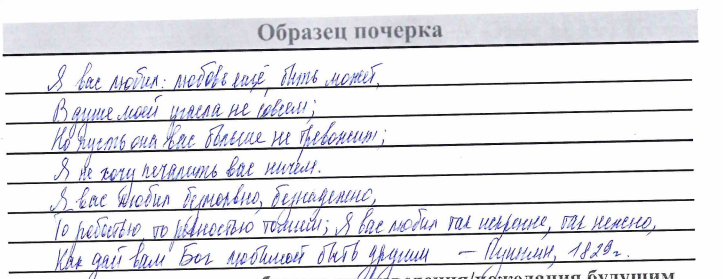 Образец почерка
Я вас любил: любовь ещё, быть может,
В душе моей угасла не совсем;
Но пусть она вас больше не тревожит;
Я не хочу печалить вас ничем.
Я вас любил безмолвно, безнадежно,
То робостью, то ревностью томим; Я вас любил так искренно, так нежно,
Как дай вам Бог любимой быть другим – Пушкин, 1829 г.
будущим